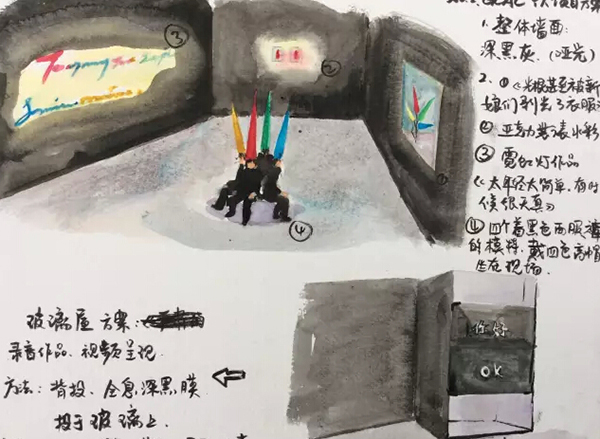 1. 整体墙面:
深黑灰.(哑光)
2. ①《光棍甚至被新
娘们剥光了衣服》
② 亚克力装裱水彩
③ 霓虹灯作品
《太年轻太简单,有时
候很天真》
④ 四个着黑色西服
的模特,戴四色高帽
坐在现场.
③
②
①
④
玻璃屋方案:
录音作品.视频呈现
方法:背投、全息深黑膜
投于玻璃上.
你好
OK